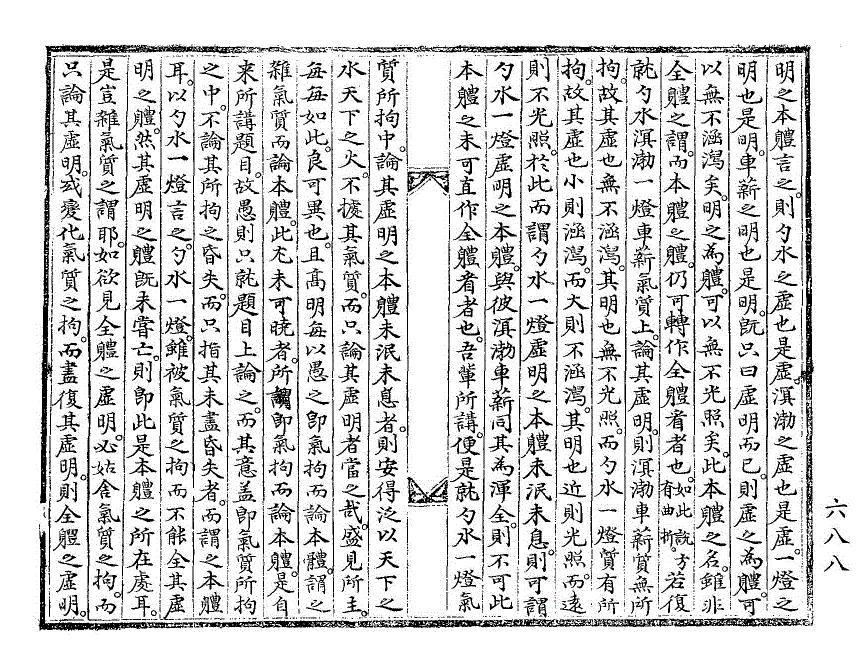 明之本體言之。則勺水之虛也是虛。溟渤之虛也是虛。一燈之
明也是明。車薪之明也是明。旣只曰虛明而已。則虛之爲體。可
以無不涵瀉矣。明之爲體。可以無不光照矣。此本體之名。雖非
全體之謂。而本體之體。仍可轉作全體看者也。如此說方有曲折。若復
就勺水溟渤一燈車薪氣質上。論其虛明。則溟渤車薪質無所
拘。故其虛也無不涵瀉。其明也無不光照。而勺水一燈質有所
拘。故其虛也小則涵瀉。而大則不涵瀉。其明也近則光照。而遠
則不光照。於此而謂勺水一燈虛明之本體未泯未息。則可謂
勺水一燈虛明之本體。與彼溟渤車薪同其爲渾全。則不可此
本體之未可直作全體看者也。吾輩所講。便是就勺水一燈氣
質所拘中。論其虛明之本體未泯未息者。則安得泛以天下之
水天下之火。不據其氣質。而只論其虛明者當之哉。盛見所主。
每每如此。良可異也。且高明每以愚之卽氣拘而論本體。謂之
雜氣質而論本體。此尤未可曉者。所謂卽氣拘而論本體。是自
來所講題目。故愚則只就題目上論之。而其意盖卽氣質所拘
之中。不論其所拘之昏失。而只指其未盡昏失者。而謂之本體
耳。以勺水一燈言之。勺水一燈。雖被氣質之拘而不能全其虛
明之體。然其虛明之體旣未嘗亡。則卽此是本體之所在處耳。
是豈雜氣質之謂耶。如欲見全體之虛明。必姑舍氣質之拘。而
只論其虛明。或變化氣質之拘。而盡復其虛明。則全體之虛明。
六八八